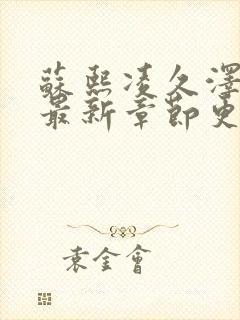 蘇熙凌久澤
最新章節更
袁金會